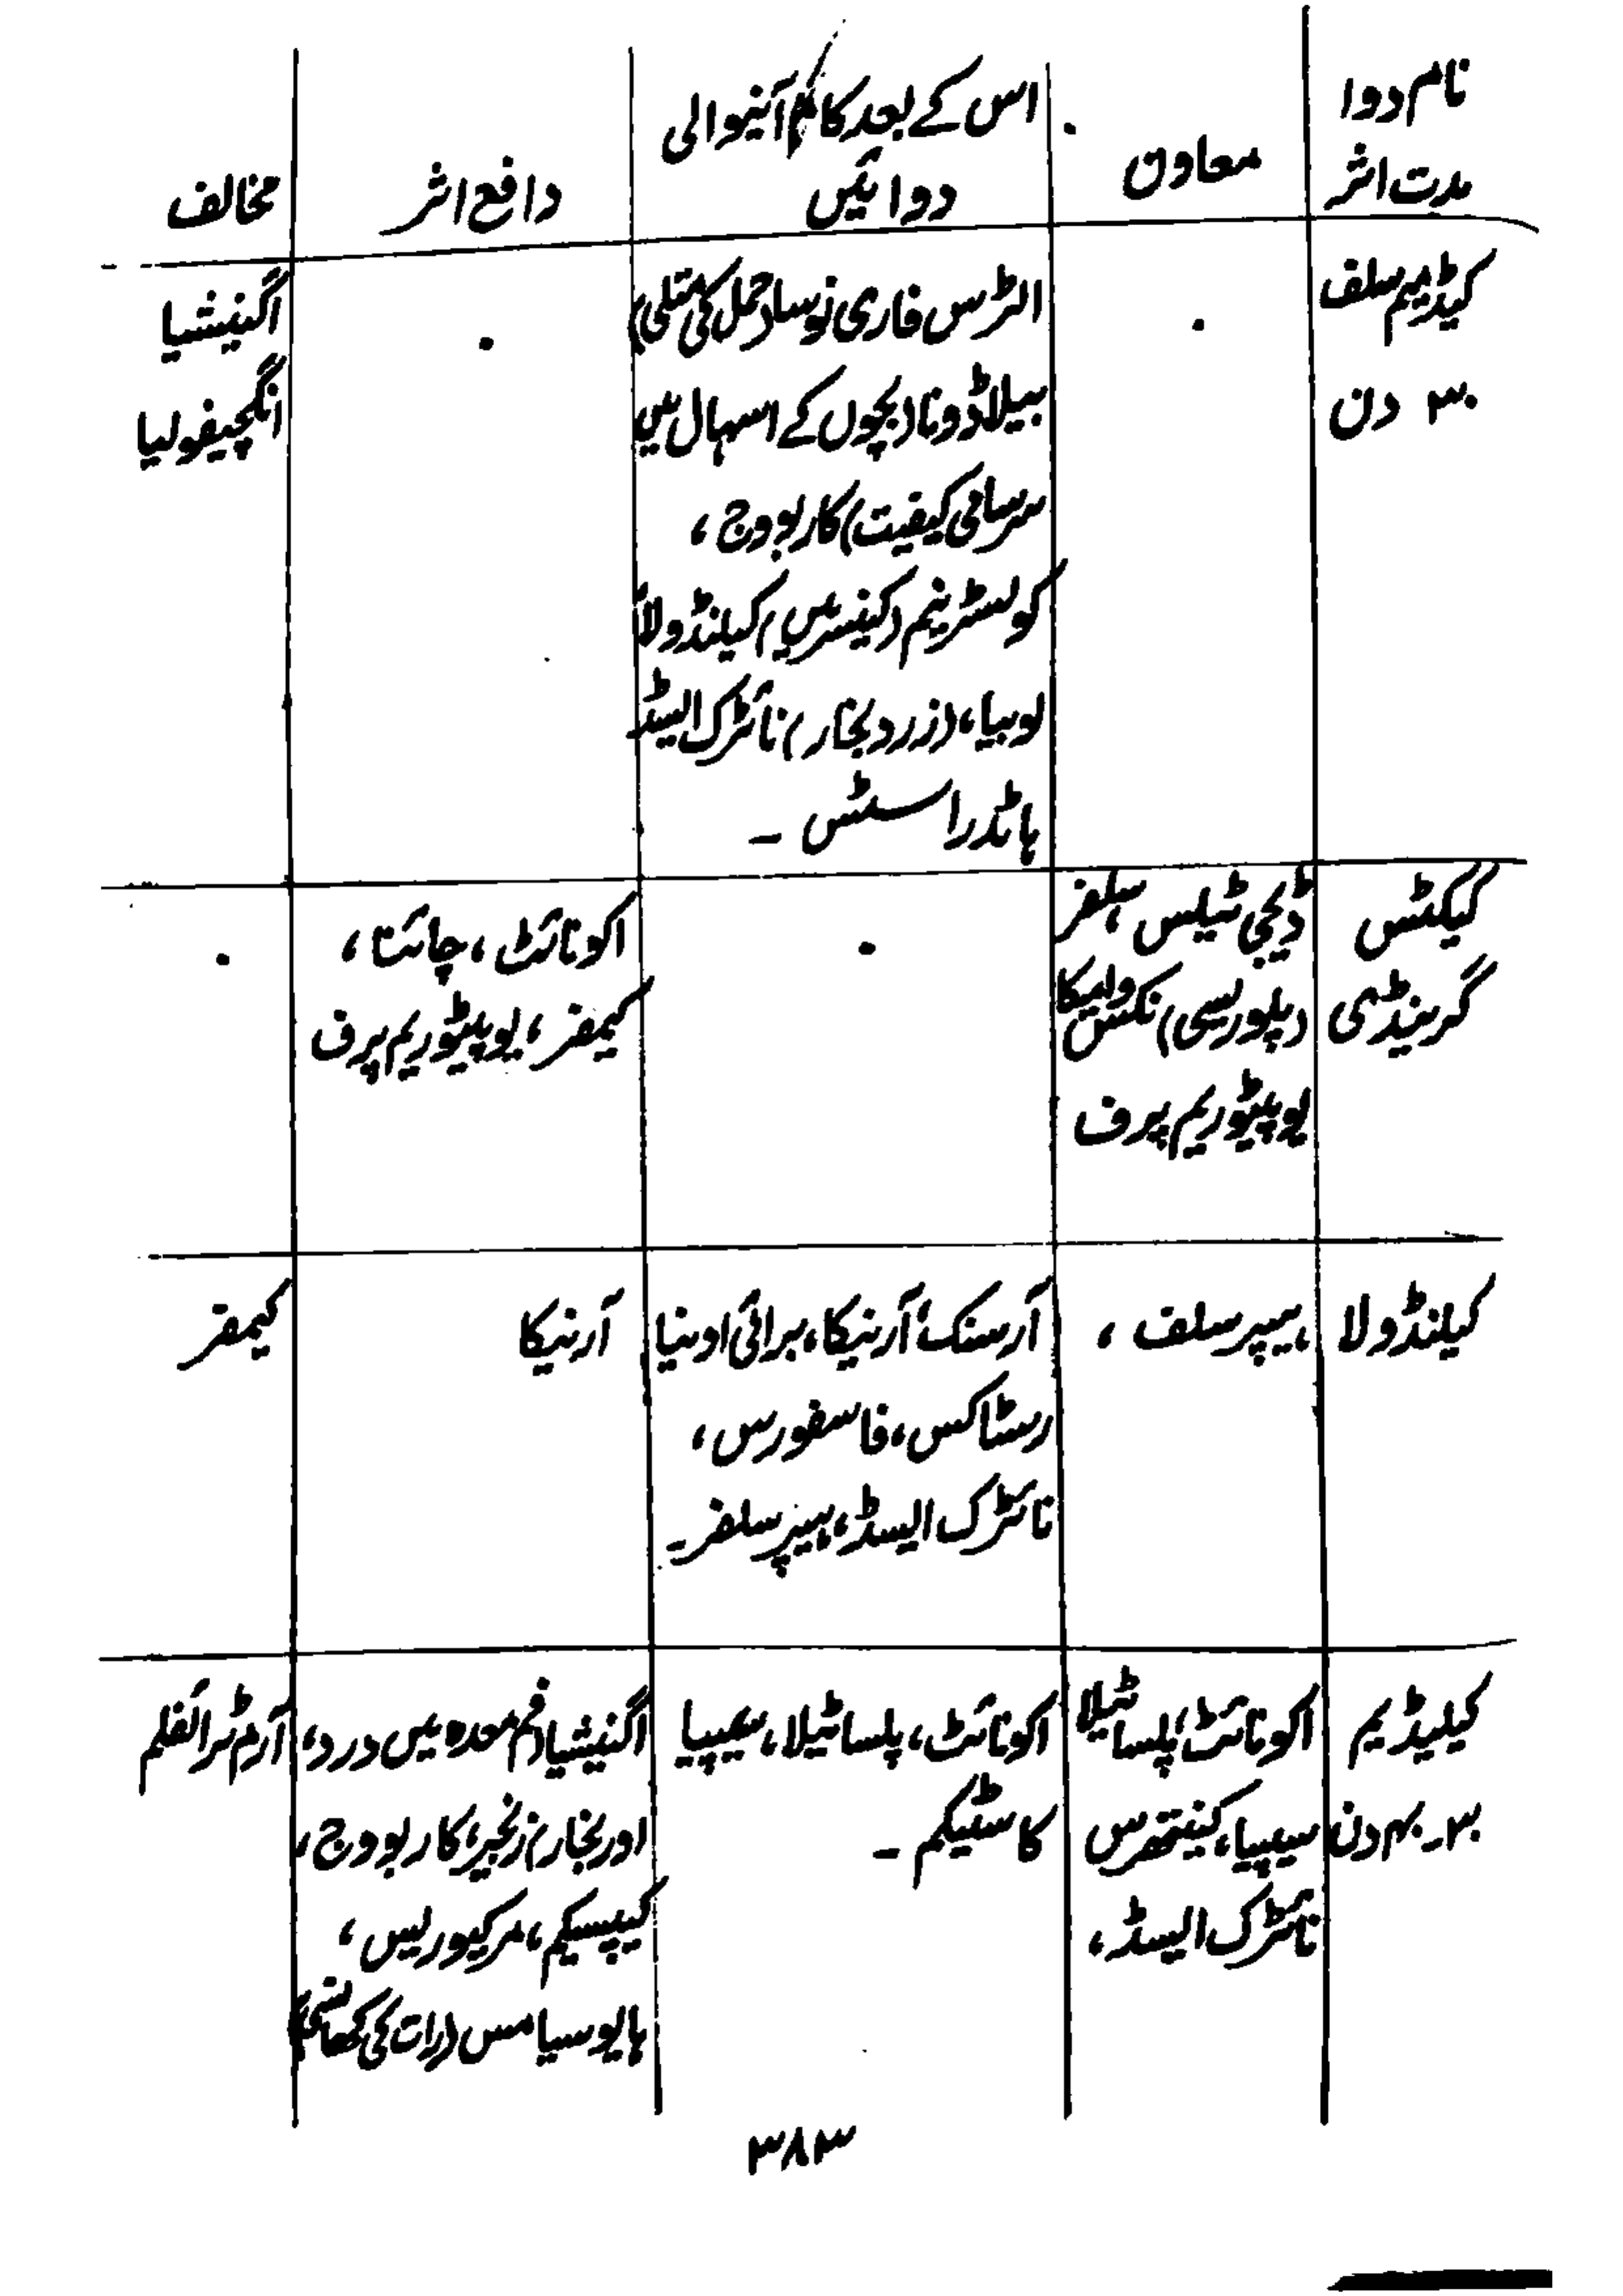 نام دوا
مدت اثر
معاون
اس کے بعد کام آنیوالی
دوائیں
دافع اثر
مخالف
کیڈیمیم سلف
۳۰ دن
۰
الٹرس فاری نوسا (حمل کی متلی)
بیلاڈونا (بچوں کے اسہال میں
سرسامی کیفیت) کاربووج،
کولسٹرینم (کینسر میں) کیلنڈولا
لوبیا، (زرد بخار) نائٹرک ایسڈ
ہائڈراسٹس ۔
۰
اگنیشیا
انگچیفولیا
کیکٹس
گرینڈی
ڈیجی ٹیلس، سلفر
(پلوریسی) نکس وامیکا
یوپیٹوریم پرف
۰
اکونائٹ، چائنا،
کیمفر، یوپیٹوریم پرف
۰
کیلنڈولا
ہیپر سلف،
آرسنک، آرنیکا، برائی اونیا
رسٹاکس، فاسفورس،
نائٹرک ایسڈ، ہیپر سلفر ۔
آرنیکا
کیمفر
کیلیڈیم
۳۰۔۴۰ دن
اکونائٹ، پلساٹیلا
سیپیا، کینتھرس
نائٹرک ایسڈ،
اکونائٹ، پلساٹیلا، سیپیا
کاسٹیکم ۔
اگنیشیا (فم معدہ میں درد،
اور بخار) زنجبر، کاربووج،
کیپسیکم، مرکیوریس،
ہایوسیامس (رات کی کھانسی)
آرم ٹرائفلم
۳۸۳